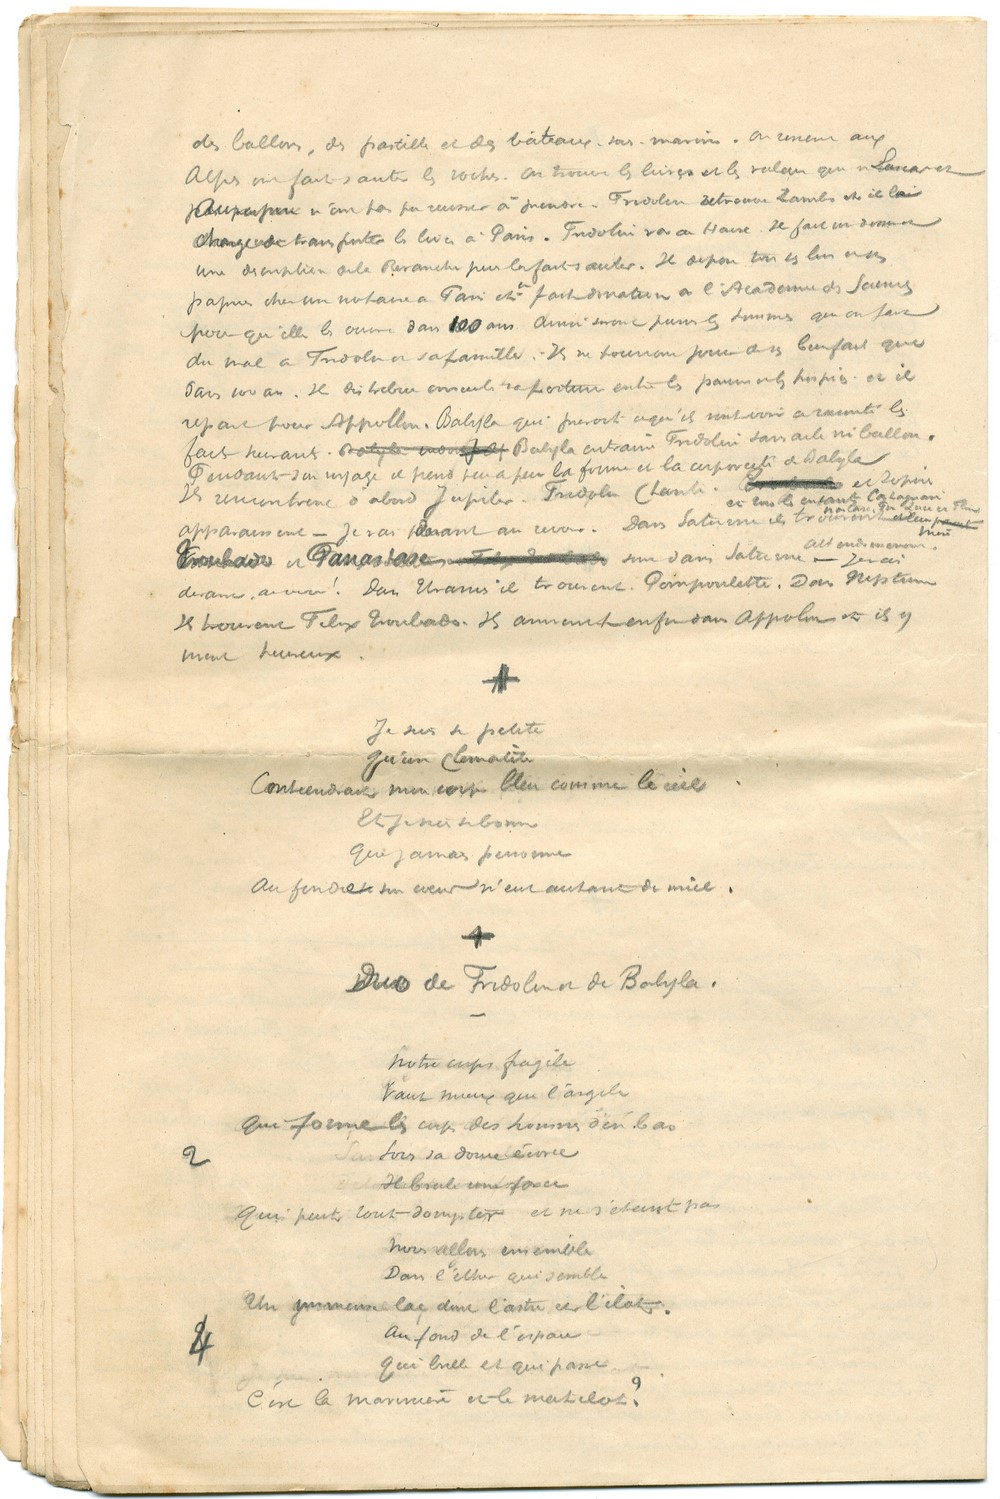 des ballons, des pastille et des bâteaux-sous-marins. On revient aux
Alpes on fait sauter les roches. On trouve les livres et les valeurs que
n'ont pas pu reussir à prendre. Fridolin retrouve Zambo et il lui
charge de transporter les livres à Paris. Fridolin va au Havre. Il fait
une description de la Revanche pour la faire sauter. Il depose tous ses
papiers chez un notaire a Paris et en fait donation a l'Academie des Sciences
pour qu'elle les ouvre dans 100 ans. Ainsi seront punis les hommes qui ont fait
du mal a Fridolin et sa famille. Ils ne pourront jouir de ses bienfaits que
dans 100 ans. Il distribue ensuite sa fortune entre les pauvres les hospices et il
repart pour Appollon. Babyla qui a raconté les
faits suivants. Babyla entraine Fridolin sans aile ni ballon.
Pendant son voyage il prend peu a peu la forme et la corporeité de Babyla
Ils rencontrent d'abord Jupiter. Fridolin chante. et Zephir
et tous les enfants
apparaissent – Je vais devant au revoir. Dans Saturne ils trouvent
Troubado et Panastase sont dans Saturne – Je vais
devant, au revoir! Dans Uranus il trouvent Poimpoulette. Dans Neptune
Ils trouvent Felix Troubado. Ils arrivent enfin dans Appolon et ils y
vivent heureux.
Je suis si petite
Qu'une clematite
Contiendrait mon corps bleu comme le ciel
Et je suis si bonne
Que jamais personne
Au fond de son coeur n'eut autant de miel.
Duo de Fridolin et de Babyla.
Notre corps fragile
Vaut mieux que l'argile
Qui forme les corps des hommes d'en bas
2
Sous sa douce écorce
Il brule une force
Qui peut tout dompter et ne s'eteint pas
Nous allons ensemble
Dans l'éther qui semble
Un immense lac dont l'astre est l'ilot.
4
Au fond de l'espace
Qui brille et qui passe
C'est la mariniere et le matelot?